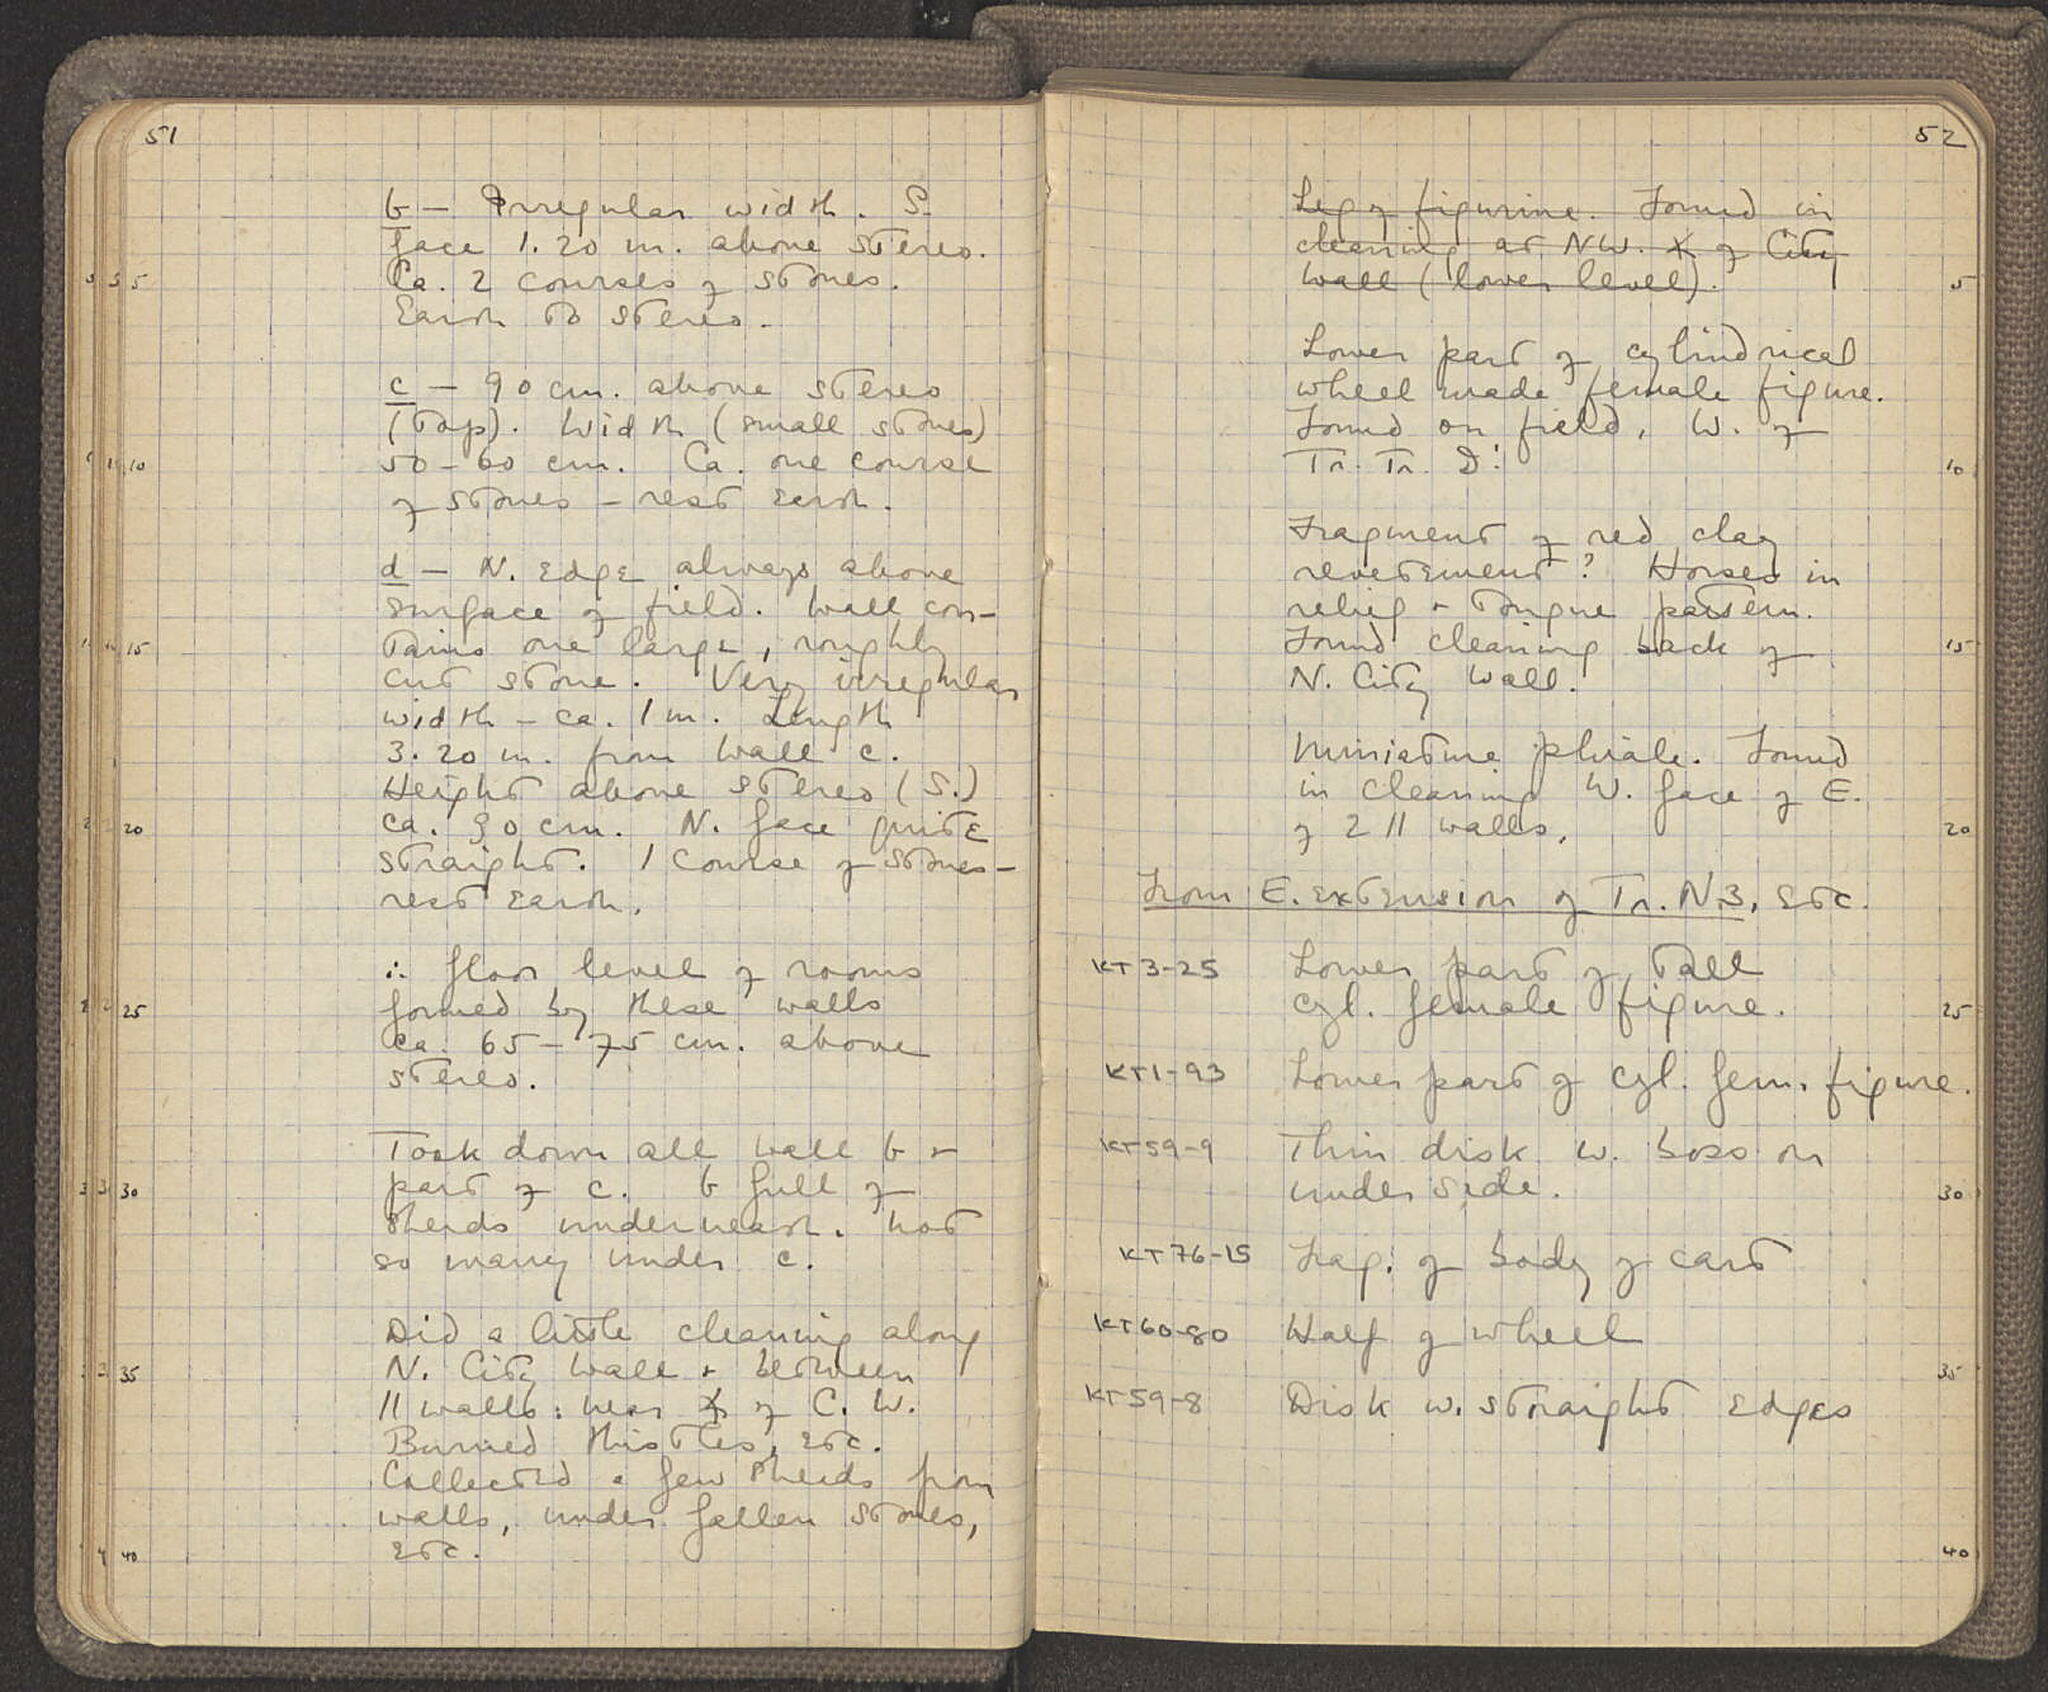 51
b – Irregular width. S.
face 1.20 m. above stereo.
Ca. 2 courses of stones.
Earth to stereo.
c – 90 cm. above stereo
(top). Width (small stones)
50-60 cm. Ca. one course
of stones – rest earth.
d – N. edge always above
surface of field. Wall con-
tains one large, roughly
cut stone. Very irregular
width – ca. 1 m. Length
3.20 m. from wall c.
Height above stereo (S.)
ca. 90 cm. N. face quite
straight. 1 course of stones –
rest earth.
∴ floor level of rooms
formed by these walls
ca. 65 – 75 cm. above
stereo.
Took down all wall b +
part of c. b full of
sherds underneath. Not
so many under c.
Did a little cleaning along
N. City Wall + between
11 walls: near ∡ of C. W.
Burned thistles, etc.
Collected a few sherds from
walls, under fallen stones,
etc.
5
10
15
20
25
30
35
40
52
Leg of figurine. Found in
cleaning at NW. ∡ of City
Wall (lower level).
Lower part of cylindrical
wheel made female figure.
Found on field, W. of
Tr. Tr. D.
Fragment of red clay
revetement? Horses in
relief + tongue pattern.
Found cleaning back of
N. City Wall.
Miniature phiale. Found
in cleaning W. face of E.
of 2 11 walls.
From E. extension of Tr. N3, etc.
KT3-25 Lower part of tall
cyl. female figure.
KT1-93 Lower part of cyl. fem. figure.
KT59-9 Thin disk w. boss on
under side.
KT76-15 Frag. of body of cart
KT60-80 Half of wheel
KT59-8 Disk w. straight edges
5
10
15
20
25
30
35
40